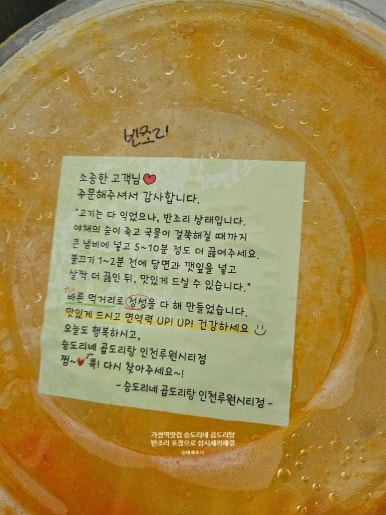 반조리
소중한 고객님
주문해주셔서 감사합니다.
"고기는 다 익었으나, 반조리 상태입니다.
야채의 숨이 죽고 국물이 걸쭉해질 때까지
큰 냄비에 넣고 5~10분 정도 더 끓여주세요.
불끄기 1~2분 전에 당면과 깻잎을 넣고
살짝 더 끓인 뒤, 맛있게 드실 수 있습니다."
바른 먹거리로 정성을 다 해 만들었습니다.
맛있게 드시고 면역력 UP! UP! 건강하세요
오늘도 행복하시고,
승도리네 곱도리탕 인천루원시티점
찜~ 콕! 다시 찾아주세요~!
- 승도리네 곱도리탕 인천루원시티점 -
가정역맛집 승도리네 곱도리탕
반조리 포장으로 삼시세끼해결